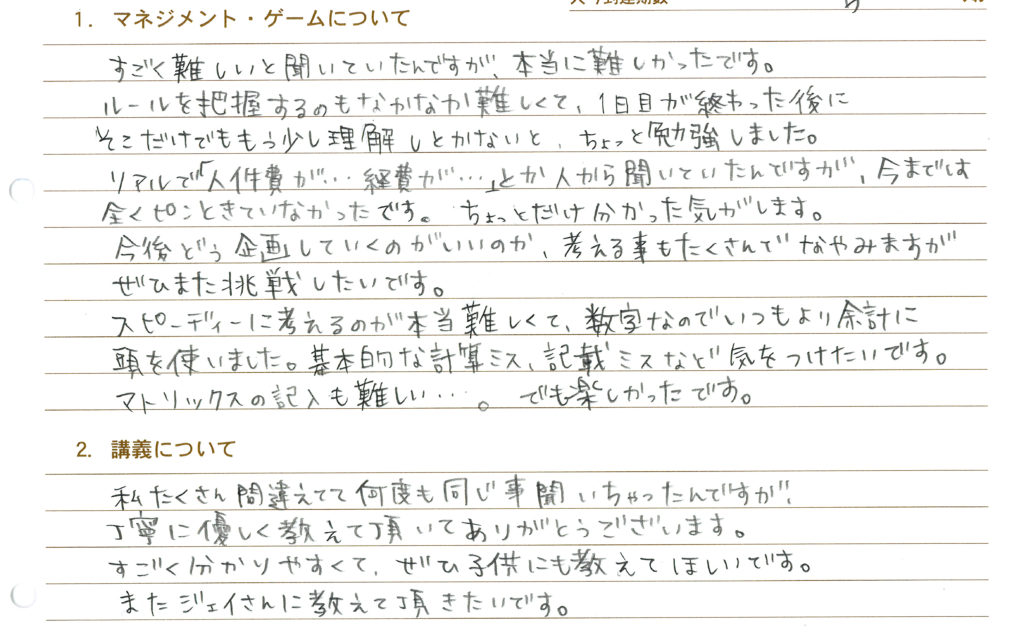 1. マネジメント・ゲームについて
すごく難しいと聞いていたんですが、本当に難しかったです。
ルールを把握するのもなかなか難しくて、1日目が終わった後に
そこだけでももう少し理解しとかないと、ちょっと勉強しました。
リアルで「人件費が…経費が…」とか人から聞いていたんですが、今までは
全くピンときていなかったです。ちょっとだけ分かった気がします。
今後どう企画していくのがいいのか、考える事もたくさんでなやみますが
ぜひまた挑戦したいです。
スピーディーに考えるのが本当難しくて、数字なのでいつもより余計に
頭を使いました。基本的な計算ミス、記載ミスなど気をつけたいです。
マトリックスの記入も難しい…。でも楽しかったです。
2. 講義について
私たくさん間違えてて何度も同じ事聞いちゃったんですが、
丁寧に優しく教えて頂いてありがとうございます。
すごく分かりやすくて、ぜひ子供にも教えてほしいです。
またジェイさんに教えて頂きたいです。